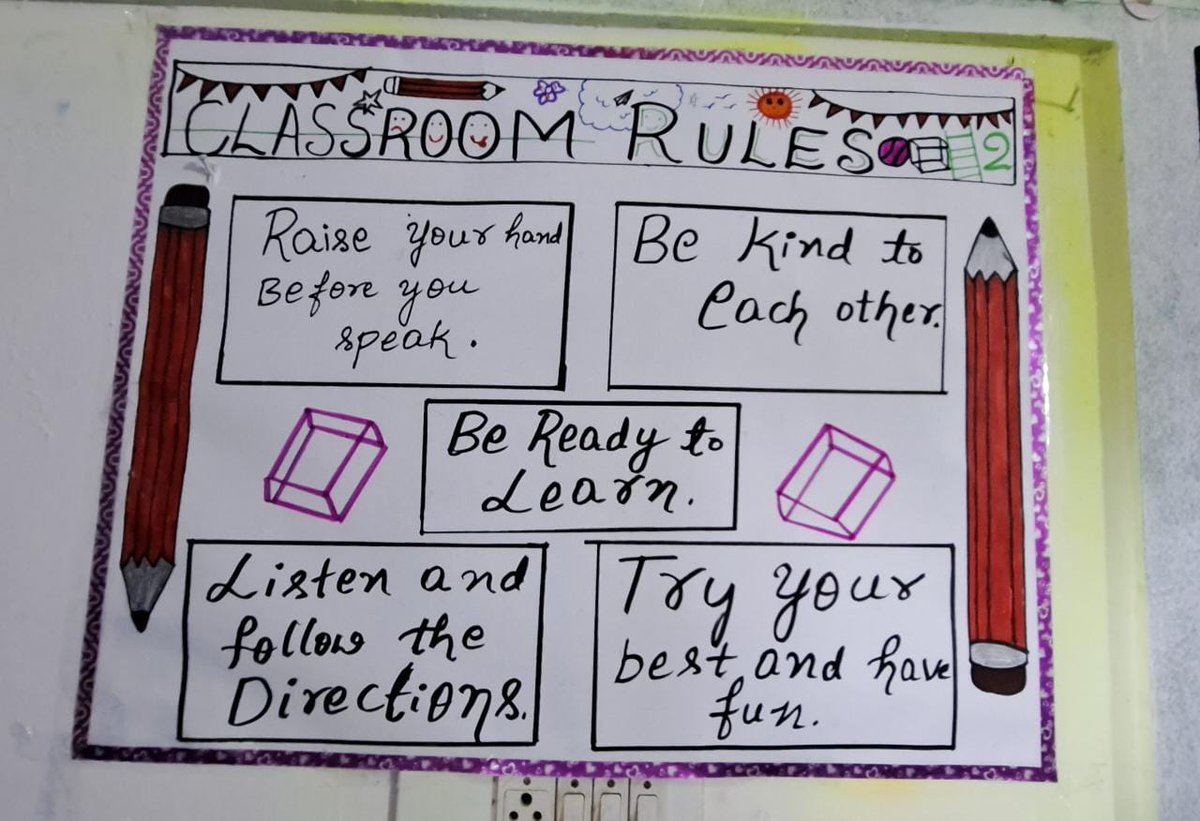 CLASSROOM RULES 2
Raise your hand
Before you
speak.
Be kind to
each other.
Be Ready to
Learn.
Listen and
follow the
Directions.
Try your
best and have
fun.